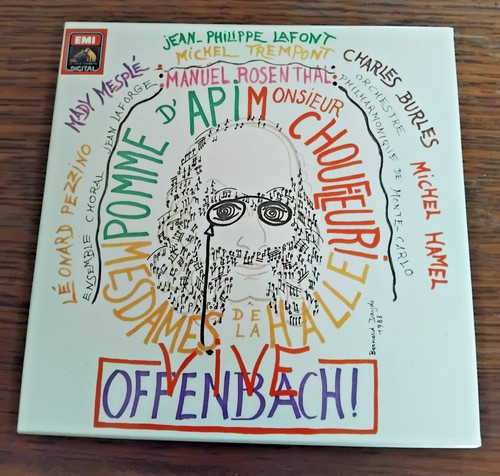 EMI
DIGITAL
JEAN-PHILIPPE LAFONT
MICHEL TREMPONT
MANUEL ROSENTHAL
MADY MESPLÉ
CHARLES BURLES
LÉONARD PEZZINO
ENSEMBLE CHORAL JEAN LAFORGE
ORCHESTRE PHILHARMONIQUE DE MONTE-CARLO
MICHEL HAMEL
POMME D'API
MONSIEUR CHOUFLEURI
MESDAMES DE LA HALLE
Bernard Daydé
1983
VIVE
OFFENBACH!